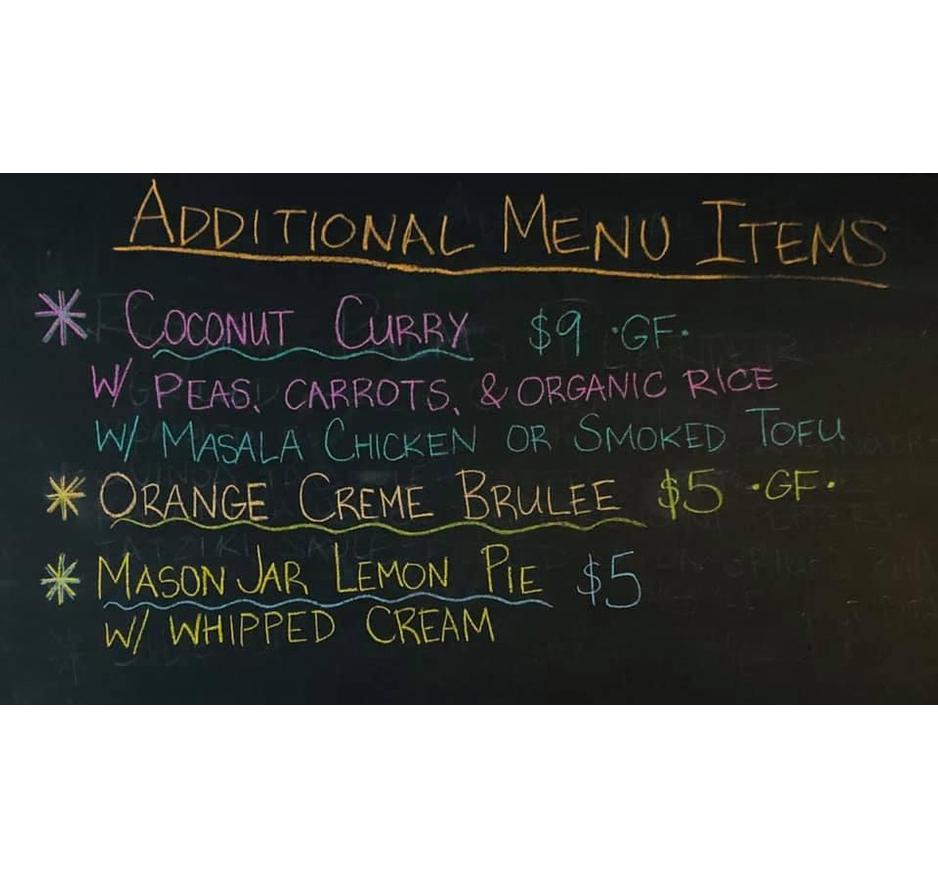 ADDITIONAL MENU ITEMS
* COCONUT CURRY $9 ·GF·
W/ PEAS, CARROTS, & ORGANIC RICE
W/ MASALA CHICKEN OR SMOKED TOFU
* ORANGE CREME BRULEE $5 ·GF·
* MASON JAR LEMON PIE $5
W/ WHIPPED CREAM